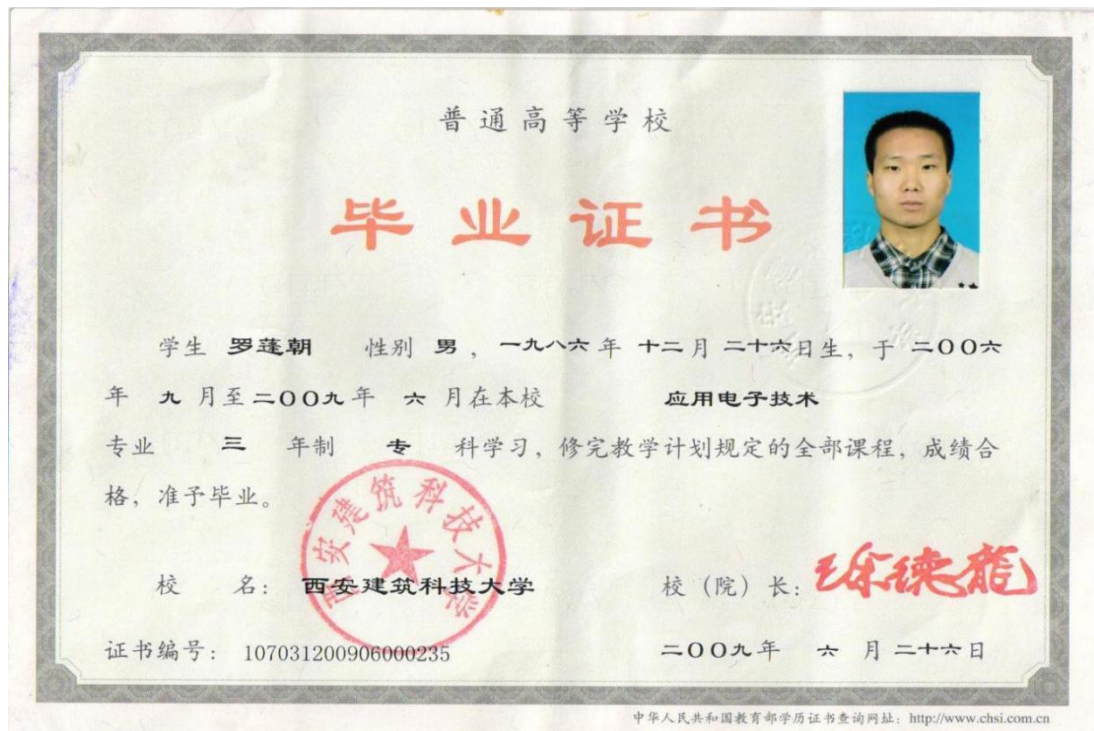 普通高等学校
毕业证书
学生 罗蓬朝 性别 男 ，一九八六年 十二月 二十六日生，于 二〇〇六
年 九 月至二〇〇九年 六 月在本校 应用电子技术
专业 三 年制 专 科学习，修完教学计划规定的全部课程，成绩合
格，准予毕业。
西安建筑科技大学
校 名： 西安建筑科技大学 校（院）长：
证书编号： 107031200906000235 二〇〇九年 六 月二十六日
中华人民共和国教育部学历证书查询网址：http://www.chsi.com.cn